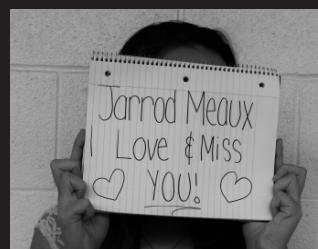 Jarrod Meaux
Love & Miss
YOU!